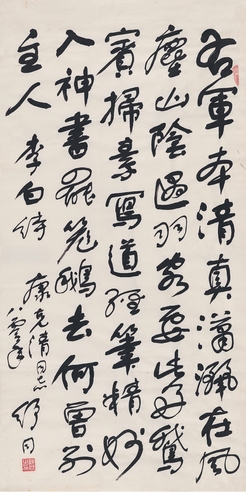 右軍本清真瀟灑在風
塵山陰過羽客要此好鵝
賓掃素寫道經筆精妙
入神書罷籠鵝去何曾別
主人 李白詩
康克清同志
舒同